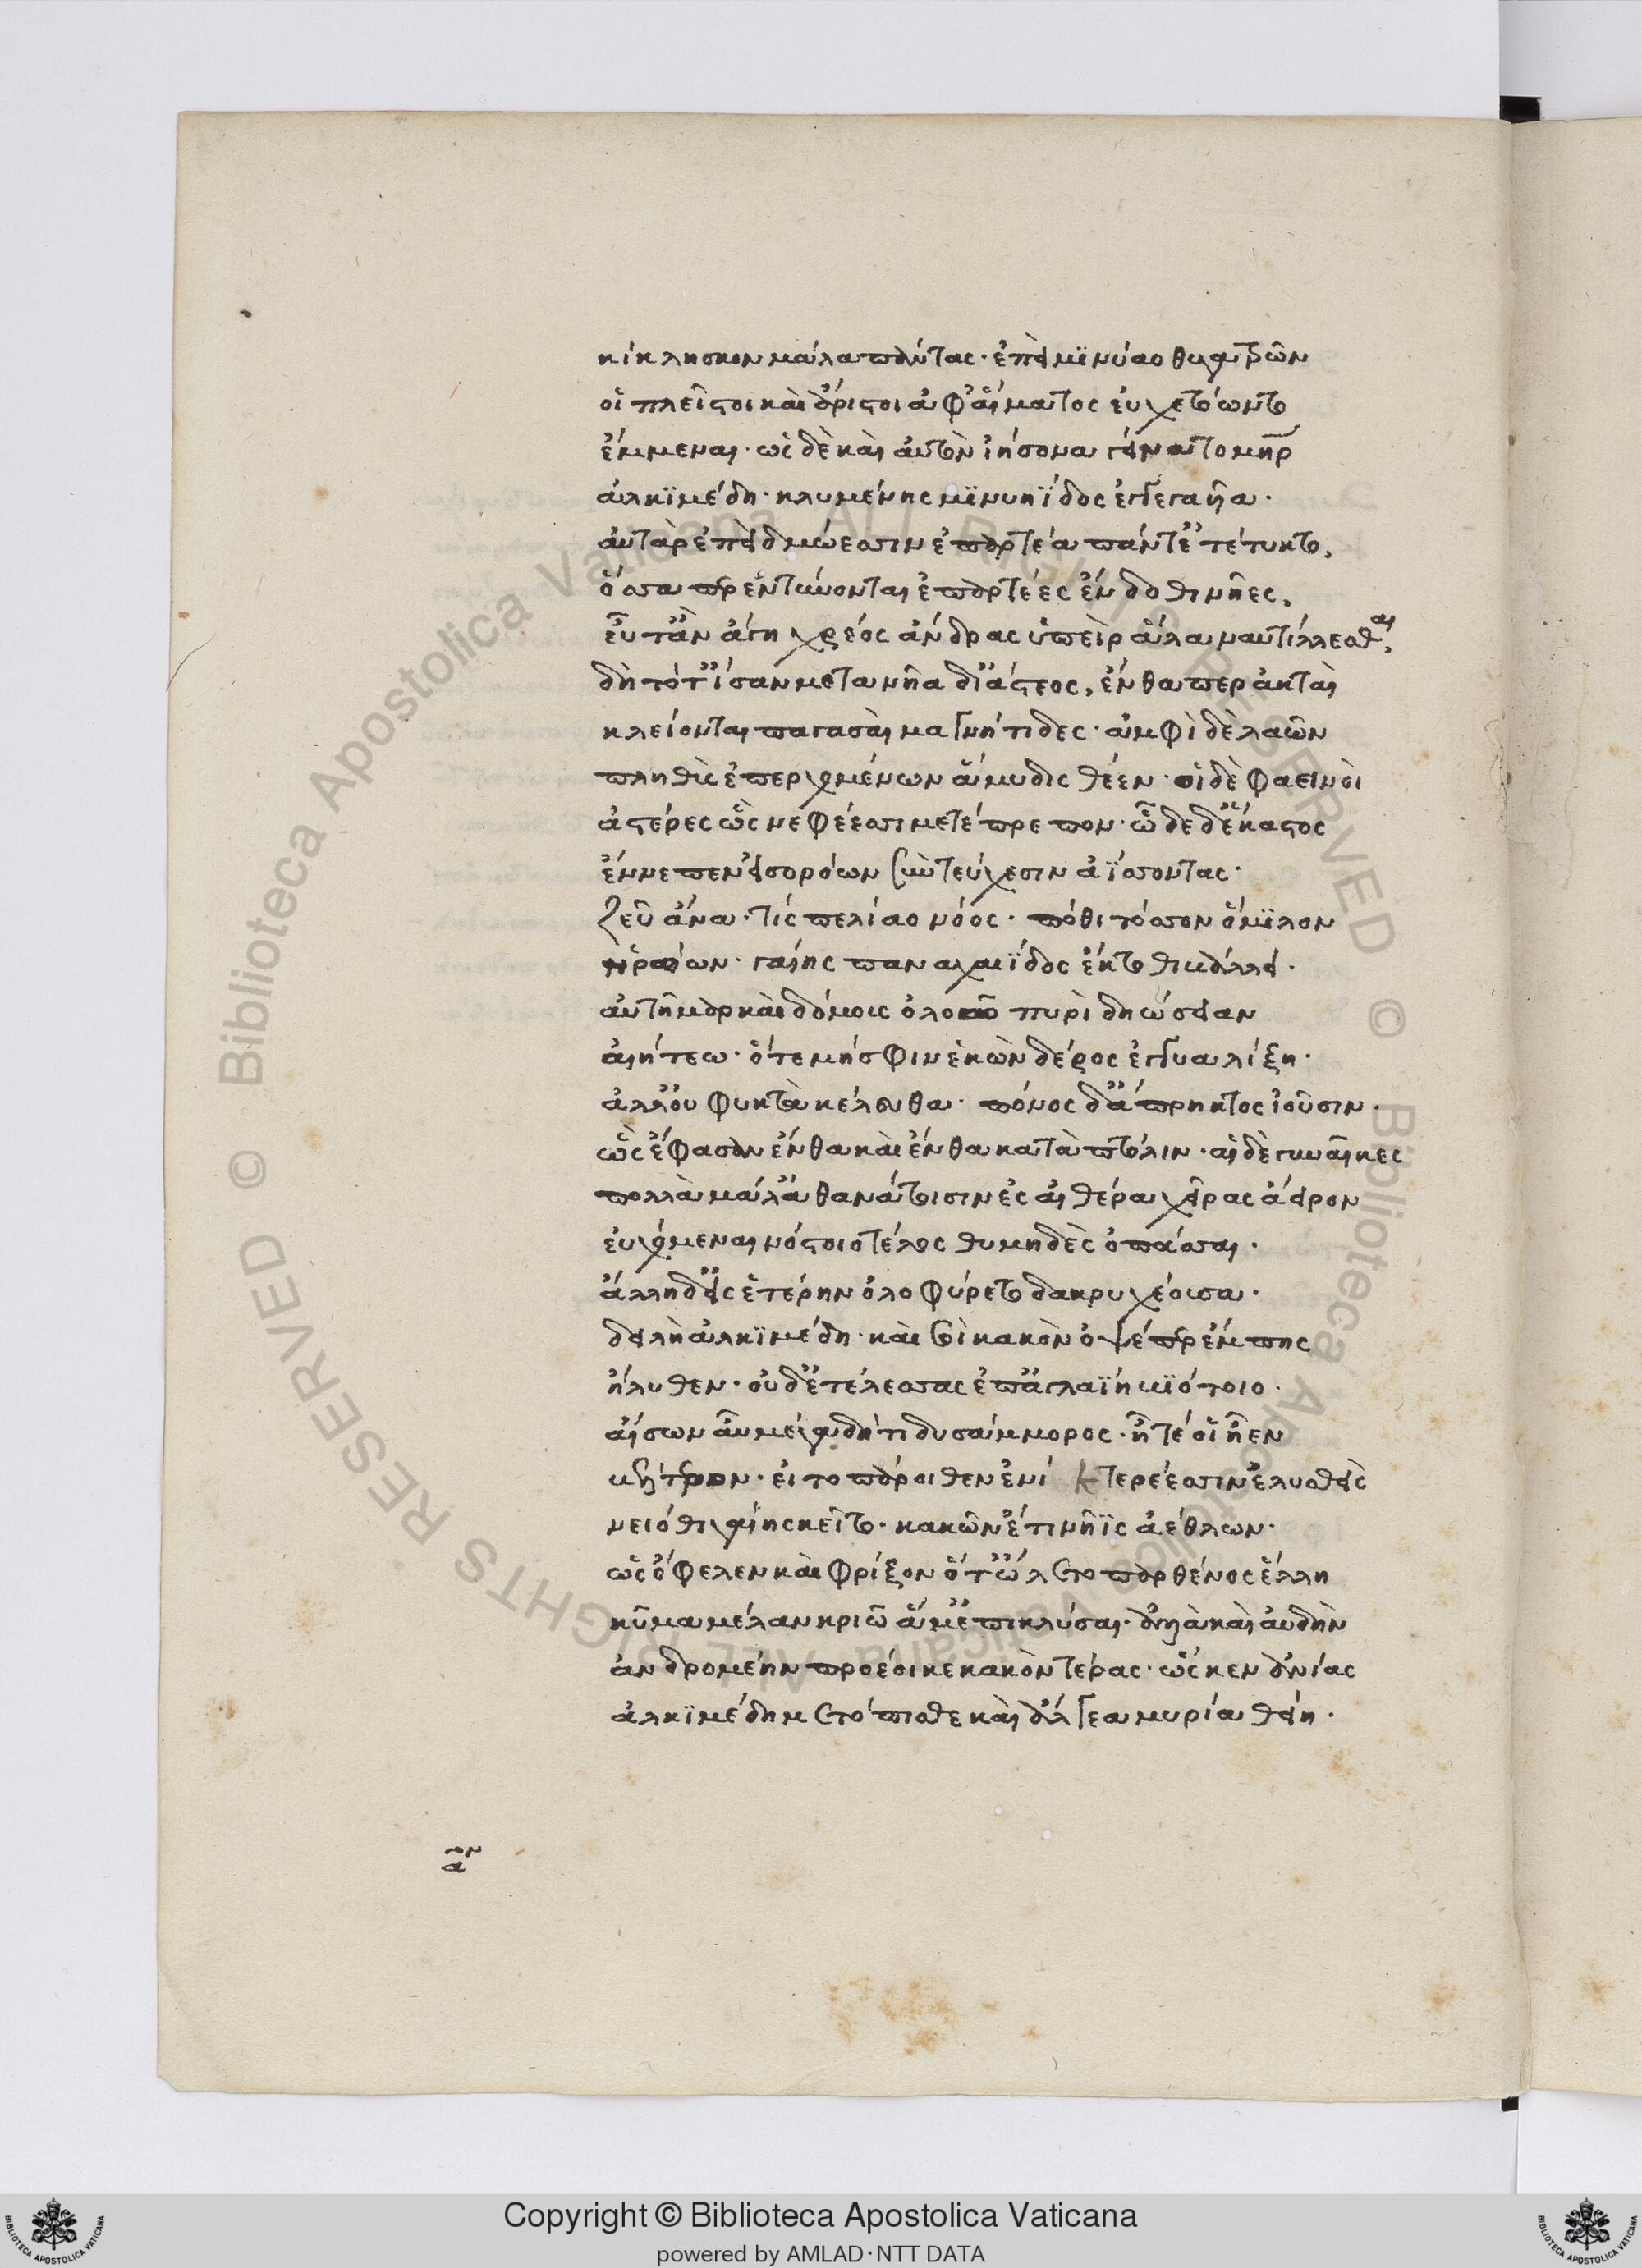 κίκλησκον μάλα πάντας· ἐπεὶ μϊνύαο θυγατρῶν
οἱ πλεῖστοι καὶ ἄριστοι ἀφ' αἵματος εὐχετόωντο
ἔμμεναι· ὡς δὲ καὶ αὐτὸν ἰήσονα γείνατο μήτηρ
ἀλκϊμέδη· κλυμένης μϊνυηΐδος ἐκγεγαυῖα·
αὐτὰρ ἐπεὶ δμώεσσιν ἐπαρτέα πάντ' ἐτέτυκτο,
ὅσσα περ ἐντύνονται ἐπαρτέες ἔνδοθι νῆες,
εὖτ' ἂν ἄγη χρέος ἄνδρας ὑπεὶρ ἅλα ναυτίλλεσθαι,
δὴ τότ' ἴσαν μετὰ νῆα δι' ἄστεος, ἔνθα περ ἀκταὶ
κλείονται παγασαὶ μαγνήτιδες· ἀμφὶ δὲ λαῶν
πληθὺς ἐπερχομένων ἄμυδις θέεν· οἱ δὲ φαεινοὶ
ἀστέρες ὣς νεφέεσσι μετέπρεπον· ὧδε δ' ἕκαστος
ἔννεπεν εἰσορόων σὺν τεύχεσιν ἀΐσσοντας·
Ζεῦ ἄνα· τίς πελίαο νόος· πόθι τόσσον ὅμϊλον
ἡρώων· γαίης παναχαιΐδος ἔκτοθι βάλλει·
αὐτῆμάρ καὶ δόμους ὀλοῶ πυρὶ δηώσειαν
αἰήτεω· ὅτε μή σφιν ἑκὼν δέρος ἐγγυαλίξη·
ἀλλ' οὐ φυκτὰ κέλευθα· πόνος δ' ἄπρηκτος ἰοῦσιν·
ὣς ἔφασαν ἔνθα καὶ ἔνθα κατὰ πτόλιν· αἱ δὲ γυναῖκες
πολλὰ μάλ' ἀθανάτοισιν ἐς αἰθέρα χεῖρας ἄειρον
εὐχόμεναι νόστοιο τέλος θυμηδὲς ὀπάσσαι·
ἄλλη δ' εἰς ἑτέρην ὀλοφύρετο δακρυχέουσα·
δειλὴ ἀλκϊμέδη· καὶ σοὶ κακὸν ὀψέ περ ἔμπης
ἤλυθεν· οὐδ' ἐτέλεσσας ἐπ' ἀγλαΐη βϊότοιο·
αἴσων αὖ μέγα δή τι δυσάμμορος· ἦ τέ οἱ ἦεν
βέλτερον· εἰ τὸ πάροιθεν ἐνὶ κτερέεσσιν ἐλυσθεὶς
νειόθι γαίης κεῖτο· κακῶν ἔτι νῆϊς ἀέθλων·
ὡς ὄφελεν καὶ φρίξον ὅτ' ὤλετο παρθένος ἕλλη
κῦμα μέλαν κριῷ ἅμ' ἐπικλύσαι· ἀλλὰ καὶ αὐδὴν
ἀνδρομέην προέοικε κακὸν τέρας· ὥς κεν ἀνίας
ἀλκϊμέδη μετόπισθε καὶ ἄλγεα μυρία θείη·
Copyright © Biblioteca Apostolica Vaticana
powered by AMLAD·NTT DATA